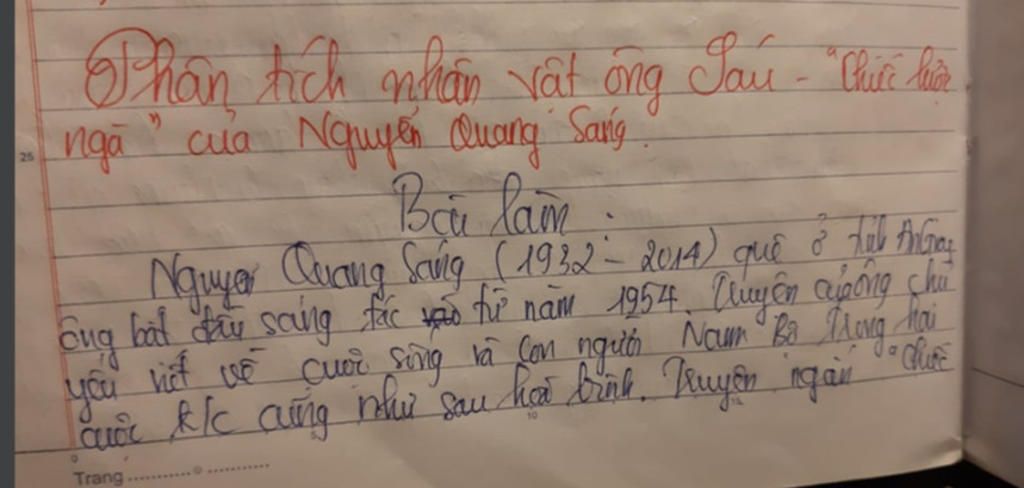 ② Phân tích nhân vật ông Sáu - "Chiếc lược
ngà" của Nguyễn Quang Sáng.
Bài làm:
Nguyễn Quang Sáng (1932 - 2014) quê ở tỉnh An Giang
ông bắt đầu sáng tác từ năm 1954. Truyện của ông chủ
yếu viết về cuộc sống và con người Nam Bộ trong hai
cuộc k/c cũng như sau hoà bình. Truyện ngắn "Chiếc
25
Trang